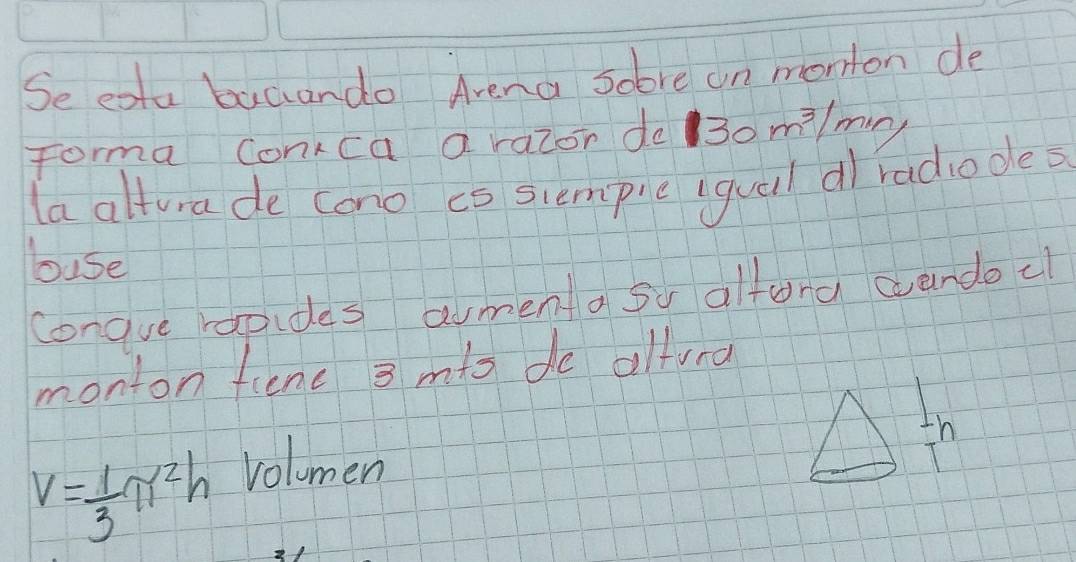 Se esta buciando Arena sobre un monton de
Forma conica a razon de 30 m³/min,
la altura de cono es siempre igual al radio de s
buse
Conque rapides aumenta su altura cuando el
monton tiene 3 mts de altura
h
V = 1/3 πr²h Volumen